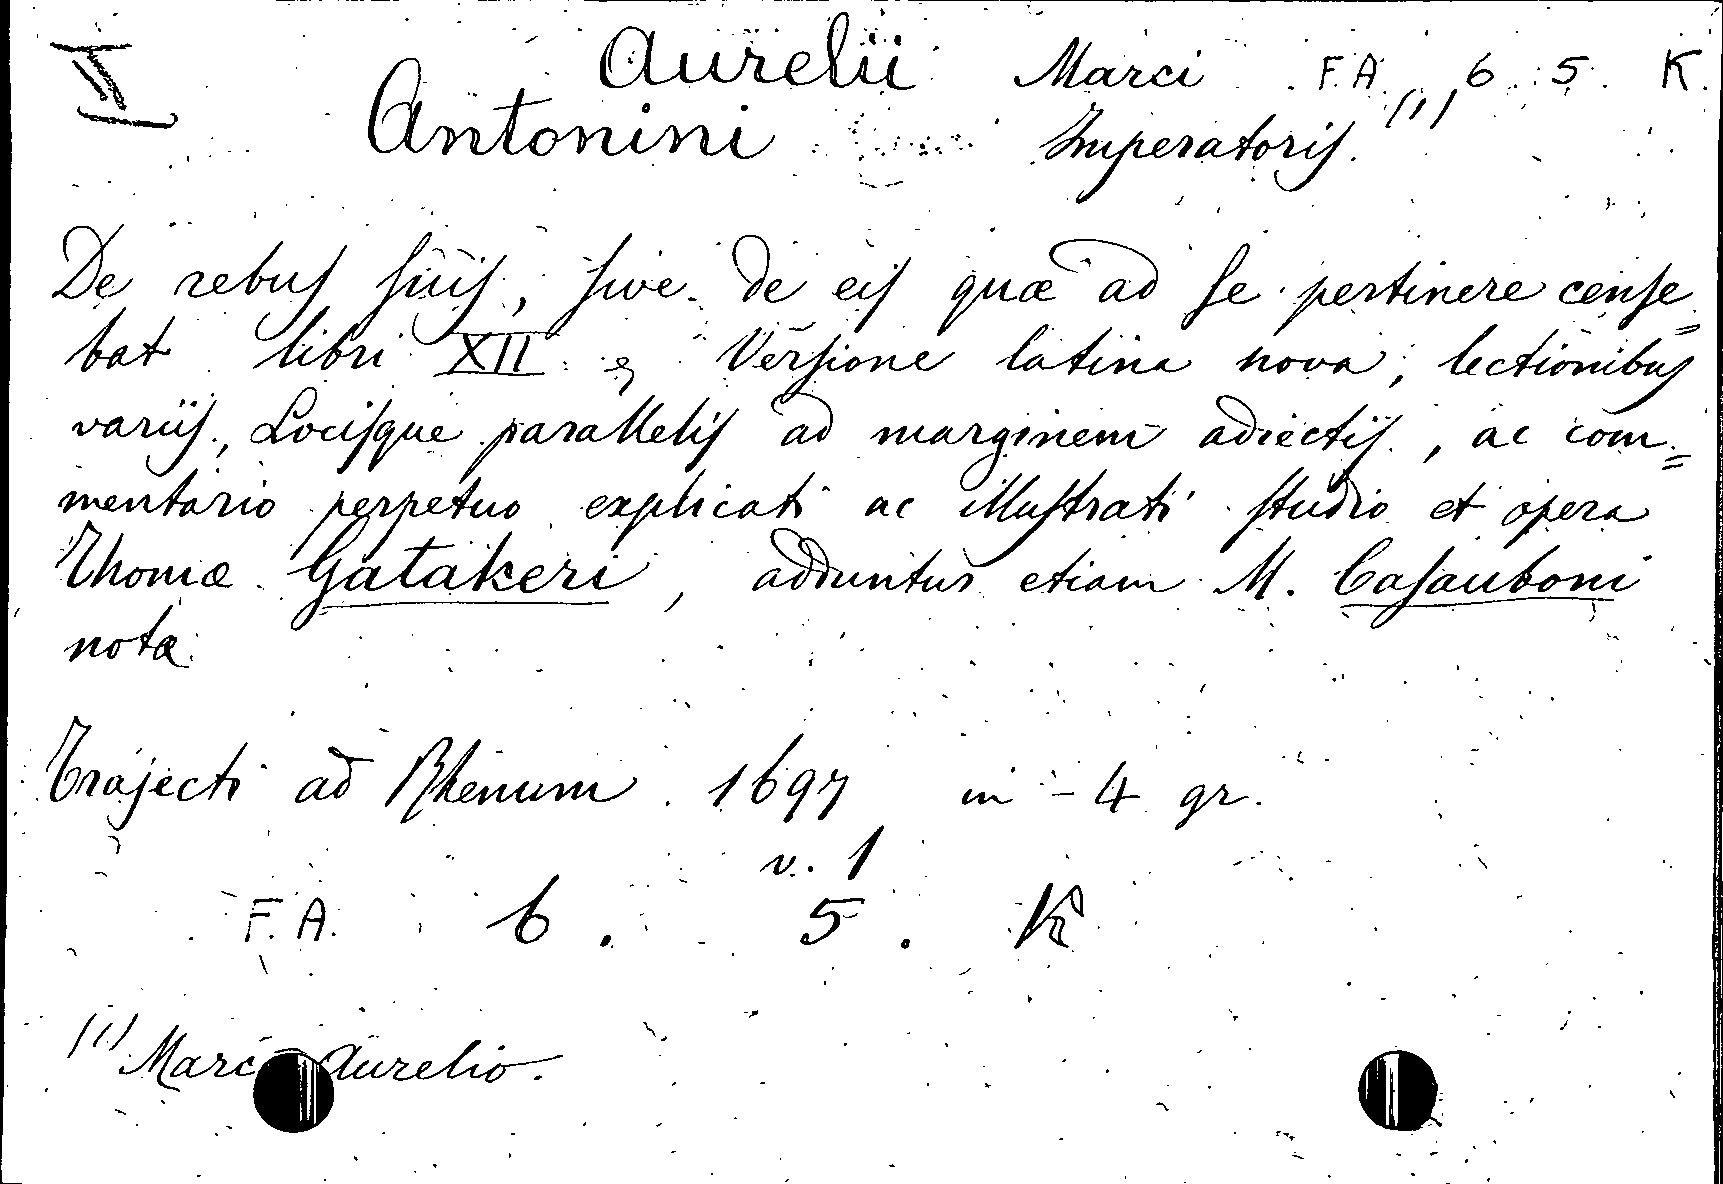 Aurelii Marci F.A. 6 5 K.
Antonini Imperatoris. (1)
De rebus suis, sive de eis quæ ad se pertinere cense=
bat libri XII & Versione latina nova, lectionibus
variis, Locisque parallelis ad marginem adiectis, ac com=
mentario perpetuo explicati ac illustrati studio et opera
Thomæ Gatakeri, adduntur etiam M. Casauboni
notæ.
Trajecti ad Rhenum 1697 in-4 gr.
v. 1
F.A. 6. 5. K
(1) Marco Aurelio.